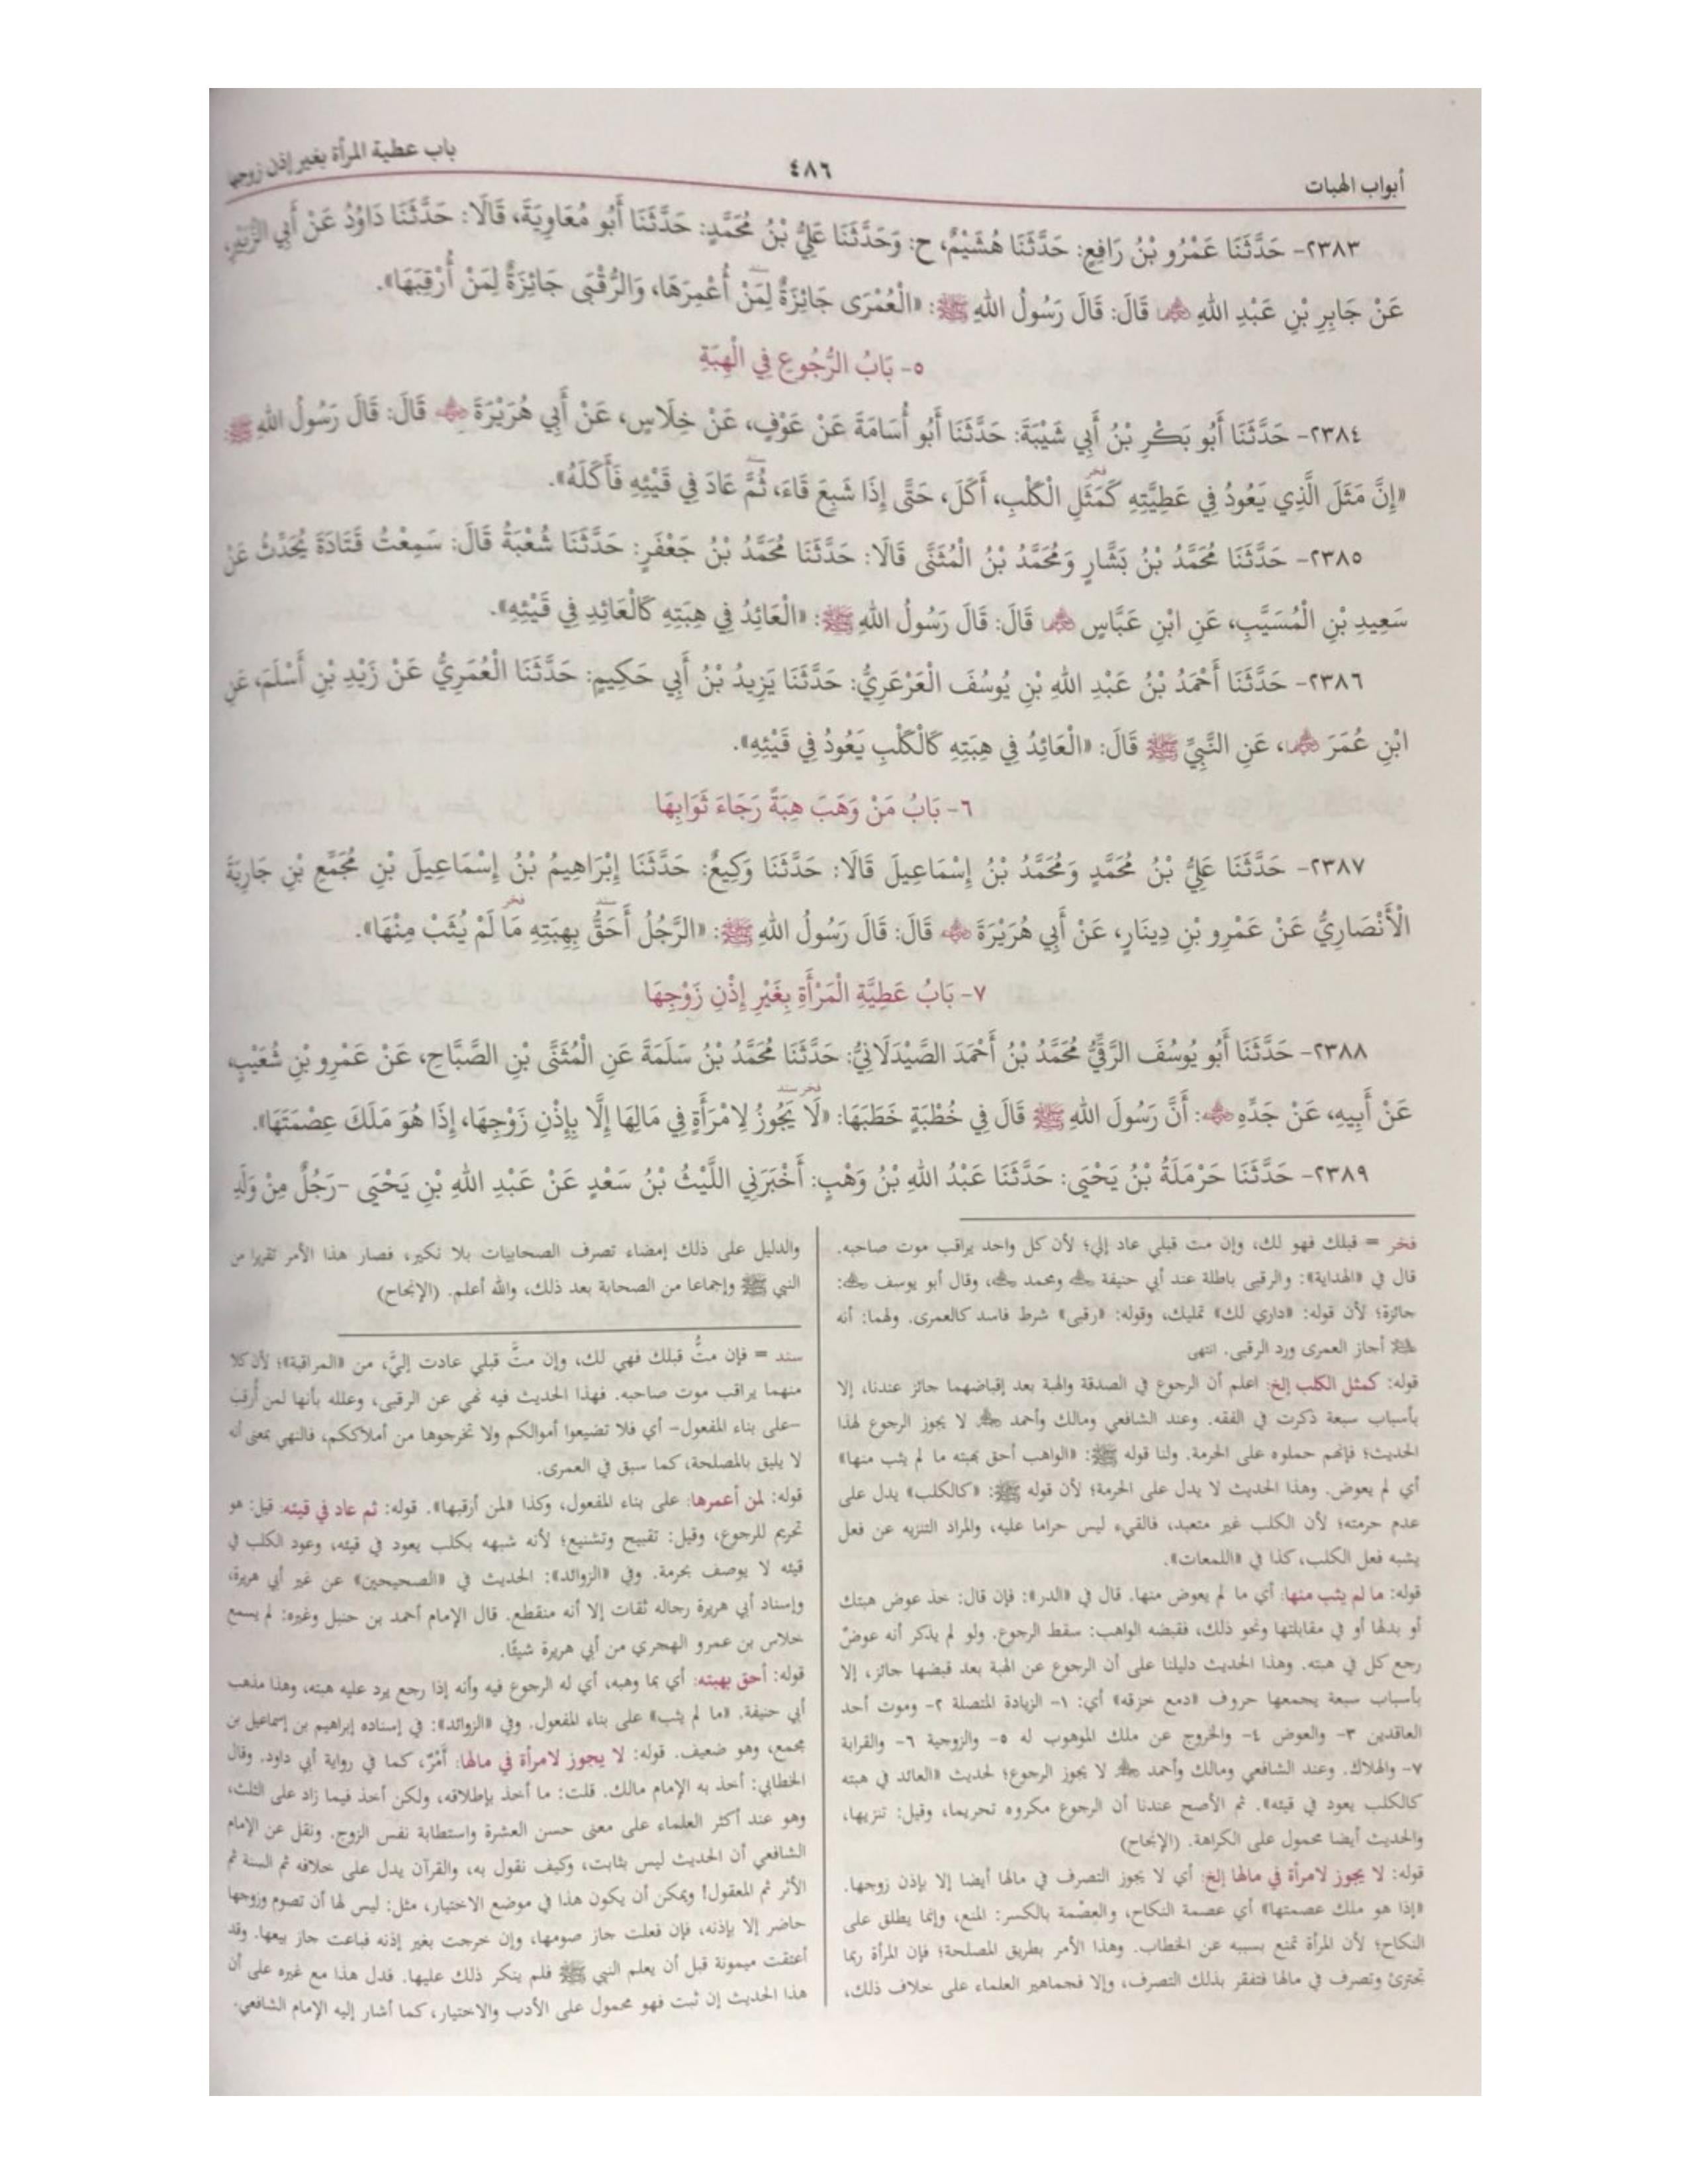 أبواب الهبات
٤٨٦
باب عطية المرأة بغير إذن زوجها
٢٣٨٣- حَدَّثَنَا عَمْرُو بْنُ رَافِعٍ: حَدَّثَنَا هُشَيْمٌ، ح: وَحَدَّثَنَا عَلِيُّ بْنُ مُحَمَّدٍ: حَدَّثَنَا أَبُو مُعَاوِيَةَ، قَالَا: حَدَّثَنَا دَاوُدُ عَنْ أَبِي الزُّبَيْرِ،
عَنْ جَابِرِ بْنِ عَبْدِ اللهِ ﵄ قَالَ: قَالَ رَسُولُ اللهِ ﷺ: «الْعُمْرَى جَائِزَةٌ لِمَنْ أُعْمِرَهَا، وَالرُّقْبَى جَائِزَةٌ لِمَنْ أُرْقِبَهَا».
٥- بَابُ الرُّجُوعِ فِي الْهِبَةِ
٢٣٨٤- حَدَّثَنَا أَبُو بَكْرِ بْنُ أَبِي شَيْبَةَ: حَدَّثَنَا أَبُو أُسَامَةَ عَنْ عَوْفٍ، عَنْ خِلَاسٍ، عَنْ أَبِي هُرَيْرَةَ ﵁ قَالَ: قَالَ رَسُولُ اللهِ ﷺ:
«إِنَّ مَثَلَ الَّذِي يَعُودُ فِي عَطِيَّتِهِ كَمَثَلِ الْكَلْبِ، أَكَلَ، حَتَّى إِذَا شَبِعَ قَاءَ، ثُمَّ عَادَ فِي قَيْئِهِ فَأَكَلَهُ».
٢٣٨٥- حَدَّثَنَا مُحَمَّدُ بْنُ بَشَّارٍ وَمُحَمَّدُ بْنُ الْمُثَنَّى قَالَا: حَدَّثَنَا مُحَمَّدُ بْنُ جَعْفَرٍ: حَدَّثَنَا شُعْبَةُ قَالَ: سَمِعْتُ قَتَادَةَ يُحَدِّثُ عَنْ
سَعِيدِ بْنِ الْمُسَيَّبِ، عَنِ ابْنِ عَبَّاسٍ ﵄ قَالَ: قَالَ رَسُولُ اللهِ ﷺ: «الْعَائِدُ فِي هِبَتِهِ كَالْعَائِدِ فِي قَيْئِهِ».
٢٣٨٦- حَدَّثَنَا أَحْمَدُ بْنُ عَبْدِ اللهِ بْنِ يُوسُفَ الْعَرْعَرِيُّ: حَدَّثَنَا يَزِيدُ بْنُ أَبِي حَكِيمٍ: حَدَّثَنَا الْعُمَرِيُّ عَنْ زَيْدِ بْنِ أَسْلَمَ، عَنِ
ابْنِ عُمَرَ ﵄، عَنِ النَّبِيِّ ﷺ قَالَ: «الْعَائِدُ فِي هِبَتِهِ كَالْكَلْبِ يَعُودُ فِي قَيْئِهِ».
٦- بَابُ مَنْ وَهَبَ هِبَةً رَجَاءَ ثَوَابِهَا
٢٣٨٧- حَدَّثَنَا عَلِيُّ بْنُ مُحَمَّدٍ وَمُحَمَّدُ بْنُ إِسْمَاعِيلَ قَالَا: حَدَّثَنَا وَكِيعٌ: حَدَّثَنَا إِبْرَاهِيمُ بْنُ إِسْمَاعِيلَ بْنِ مُجَمَّعِ بْنِ جَارِيَةَ
الْأَنْصَارِيُّ عَنْ عَمْرِو بْنِ دِينَارٍ، عَنْ أَبِي هُرَيْرَةَ ﵁ قَالَ: قَالَ رَسُولُ اللهِ ﷺ: «الرَّجُلُ أَحَقُّ بِهِبَتِهِ مَا لَمْ يُثَبْ مِنْهَا».
٧- بَابُ عَطِيَّةِ الْمَرْأَةِ بِغَيْرِ إِذْنِ زَوْجِهَا
٢٣٨٨- حَدَّثَنَا أَبُو يُوسُفَ الرَّقِّيُّ مُحَمَّدُ بْنُ أَحْمَدَ الصَّيْدَلَانِيُّ: حَدَّثَنَا مُحَمَّدُ بْنُ سَلَمَةَ عَنِ الْمُثَنَّى بْنِ الصَّبَّاحِ، عَنْ عَمْرِو بْنِ شُعَيْبٍ
عَنْ أَبِيهِ، عَنْ جَدِّهِ ﵁: أَنَّ رَسُولَ اللهِ ﷺ قَالَ فِي خُطْبَةٍ خَطَبَهَا: «لَا يَجُوزُ لِامْرَأَةٍ فِي مَالِهَا إِلَّا بِإِذْنِ زَوْجِهَا، إِذَا هُوَ مَلَكَ عِصْمَتَهَا».
٢٣٨٩- حَدَّثَنَا حَرْمَلَةُ بْنُ يَحْيَى: حَدَّثَنَا عَبْدُ اللهِ بْنُ وَهْبٍ: أَخْبَرَنِي اللَّيْثُ بْنُ سَعْدٍ عَنْ عَبْدِ اللهِ بْنِ يَحْيَى -رَجُلٌ مِنْ وَلَدِ
فخر = قبلك فهو لك، وإن مت قبلي عاد إلي؛ لأن كل واحد يراقب موت صاحبه.
قال في «الهداية»: والرقبى باطلة عند أبي حنيفة ومحمد، وقال أبو يوسف:
جائزة؛ لأن قوله: «داري لك» تمليك، وقوله: «رقبى» شرط فاسد كالعمرى. ولهما: أنه
ﷺ أجاز العمرى ورد الرقبى. انتهى
قوله: كمثل الكلب إلخ: اعلم أن الرجوع في الصدقة والهبة بعد إقباضهما جائز عندنا، إلا
بأسباب سبعة ذكرت في الفقه. وعند الشافعي ومالك وأحمد لا يجوز الرجوع لهذا
الحديث؛ فإنهم حملوه على الحرمة. ولنا قوله ﷺ: «الواهب أحق بهبته ما لم يثب منها»
أي لم يعوض. وهذا الحديث لا يدل على الحرمة؛ لأن قوله ﷺ: «كالكلب» يدل على
عدم حرمته؛ لأن الكلب غير متعبد، فالقيء ليس حراما عليه، والمراد التنزيه عن فعل
يشبه فعل الكلب، كذا في «اللمعات».
قوله: ما لم يثب منها: أي ما لم يعوض منها. قال في «الدر»: فإن قال: خذ عوض هبتك
أو بدلها أو في مقابلتها ونحو ذلك، فقبضه الواهب: سقط الرجوع. ولو لم يذكر أنه عوضٌ
رجع كل في هبته. وهذا الحديث دليلنا على أن الرجوع عن الهبة بعد قبضها جائز، إلا
بأسباب سبعة يجمعها حروف «دمع خزقه» أي: ١- الزيادة المتصلة ٢- وموت أحد
العاقدين ٣- والعوض ٤- والخروج عن ملك الموهوب له ٥- والزوجية ٦- والقرابة
٧- والهلاك. وعند الشافعي ومالك وأحمد لا يجوز الرجوع؛ لحديث «العائد في هبته
كالكلب يعود في قيئه». ثم الأصح عندنا أن الرجوع مكروه تحريما، وقيل: تنزيها،
والحديث أيضا محمول على الكراهة. (الإنجاح)
قوله: لا يجوز لامرأة في مالها إلخ: أي لا يجوز التصرف في مالها أيضا إلا بإذن زوجها.
«إذا هو ملك عصمتها» أي عصمة النكاح، والعِصْمة بالكسر: المنع، وإنما يطلق على
النكاح؛ لأن المرأة تمنع بسببه عن الخطاب. وهذا الأمر بطريق المصلحة؛ فإن المرأة ربما
تجترئ وتصرف في مالها فتفقر بذلك التصرف، وإلا فجماهير العلماء على خلاف ذلك،
والدليل على ذلك إمضاء تصرف الصحابيات بلا نكير، فصار هذا الأمر تقريرا من
النبي ﷺ وإجماعا من الصحابة بعد ذلك، والله أعلم. (الإنجاح)
سند = فإن متُّ قبلك فهي لك، وإن متَّ قبلي عادت إليَّ، من «المراقبة»؛ لأن كلا
منهما يراقب موت صاحبه. فهذا الحديث فيه نهي عن الرقبى، وعلله بأنها لمن أُرقب
-على بناء المفعول- أي فلا تضيعوا أموالكم ولا تخرجوها من أملاككم، فالنهي بمعنى أنه
لا يليق بالمصلحة، كما سبق في العمرى.
قوله: لمن أعمرها: على بناء المفعول، وكذا «لمن أرقبها». قوله: ثم عاد في قيئه: قيل: هو
تحريم للرجوع، وقيل: تقبيح وتشنيع؛ لأنه شبهه بكلب يعود في قيئه، وعود الكلب في
قيئه لا يوصف بحرمة. وفي «الزوائد»: الحديث في «الصحيحين» عن غير أبي هريرة،
وإسناد أبي هريرة رجاله ثقات إلا أنه منقطع. قال الإمام أحمد بن حنبل وغيره: لم يسمع
خلاس بن عمرو الهجري من أبي هريرة شيئًا.
قوله: أحق بهبته: أي بما وهبه، أي له الرجوع فيه وأنه إذا رجع يرد عليه هبته، وهذا مذهب
أبي حنيفة. «ما لم يثب» على بناء المفعول. وفي «الزوائد»: في إسناده إبراهيم بن إسماعيل بن
مجمع، وهو ضعيف. قوله: لا يجوز لامرأة في مالها: أَمْرٌ، كما في رواية أبي داود. وقال
الخطابي: أخذ به الإمام مالك. قلت: ما أخذ بإطلاقه، ولكن أخذ فيما زاد على الثلث،
وهو عند أكثر العلماء على معنى حسن العشرة واستطابة نفس الزوج. ونقل عن الإمام
الشافعي أن الحديث ليس بثابت، وكيف نقول به، والقرآن يدل على خلافه ثم السنة ثم
الأثر ثم المعقول! ويمكن أن يكون هذا في موضع الاختيار، مثل: ليس لها أن تصوم وزوجها
حاضر إلا بإذنه، فإن فعلت جاز صومها، وإن خرجت بغير إذنه فباعت جاز بيعها. وقد
أعتقت ميمونة قبل أن يعلم النبي ﷺ فلم ينكر ذلك عليها. فدل هذا مع غيره على أن
هذا الحديث إن ثبت فهو محمول على الأدب والاختيار، كما أشار إليه الإمام الشافعي.